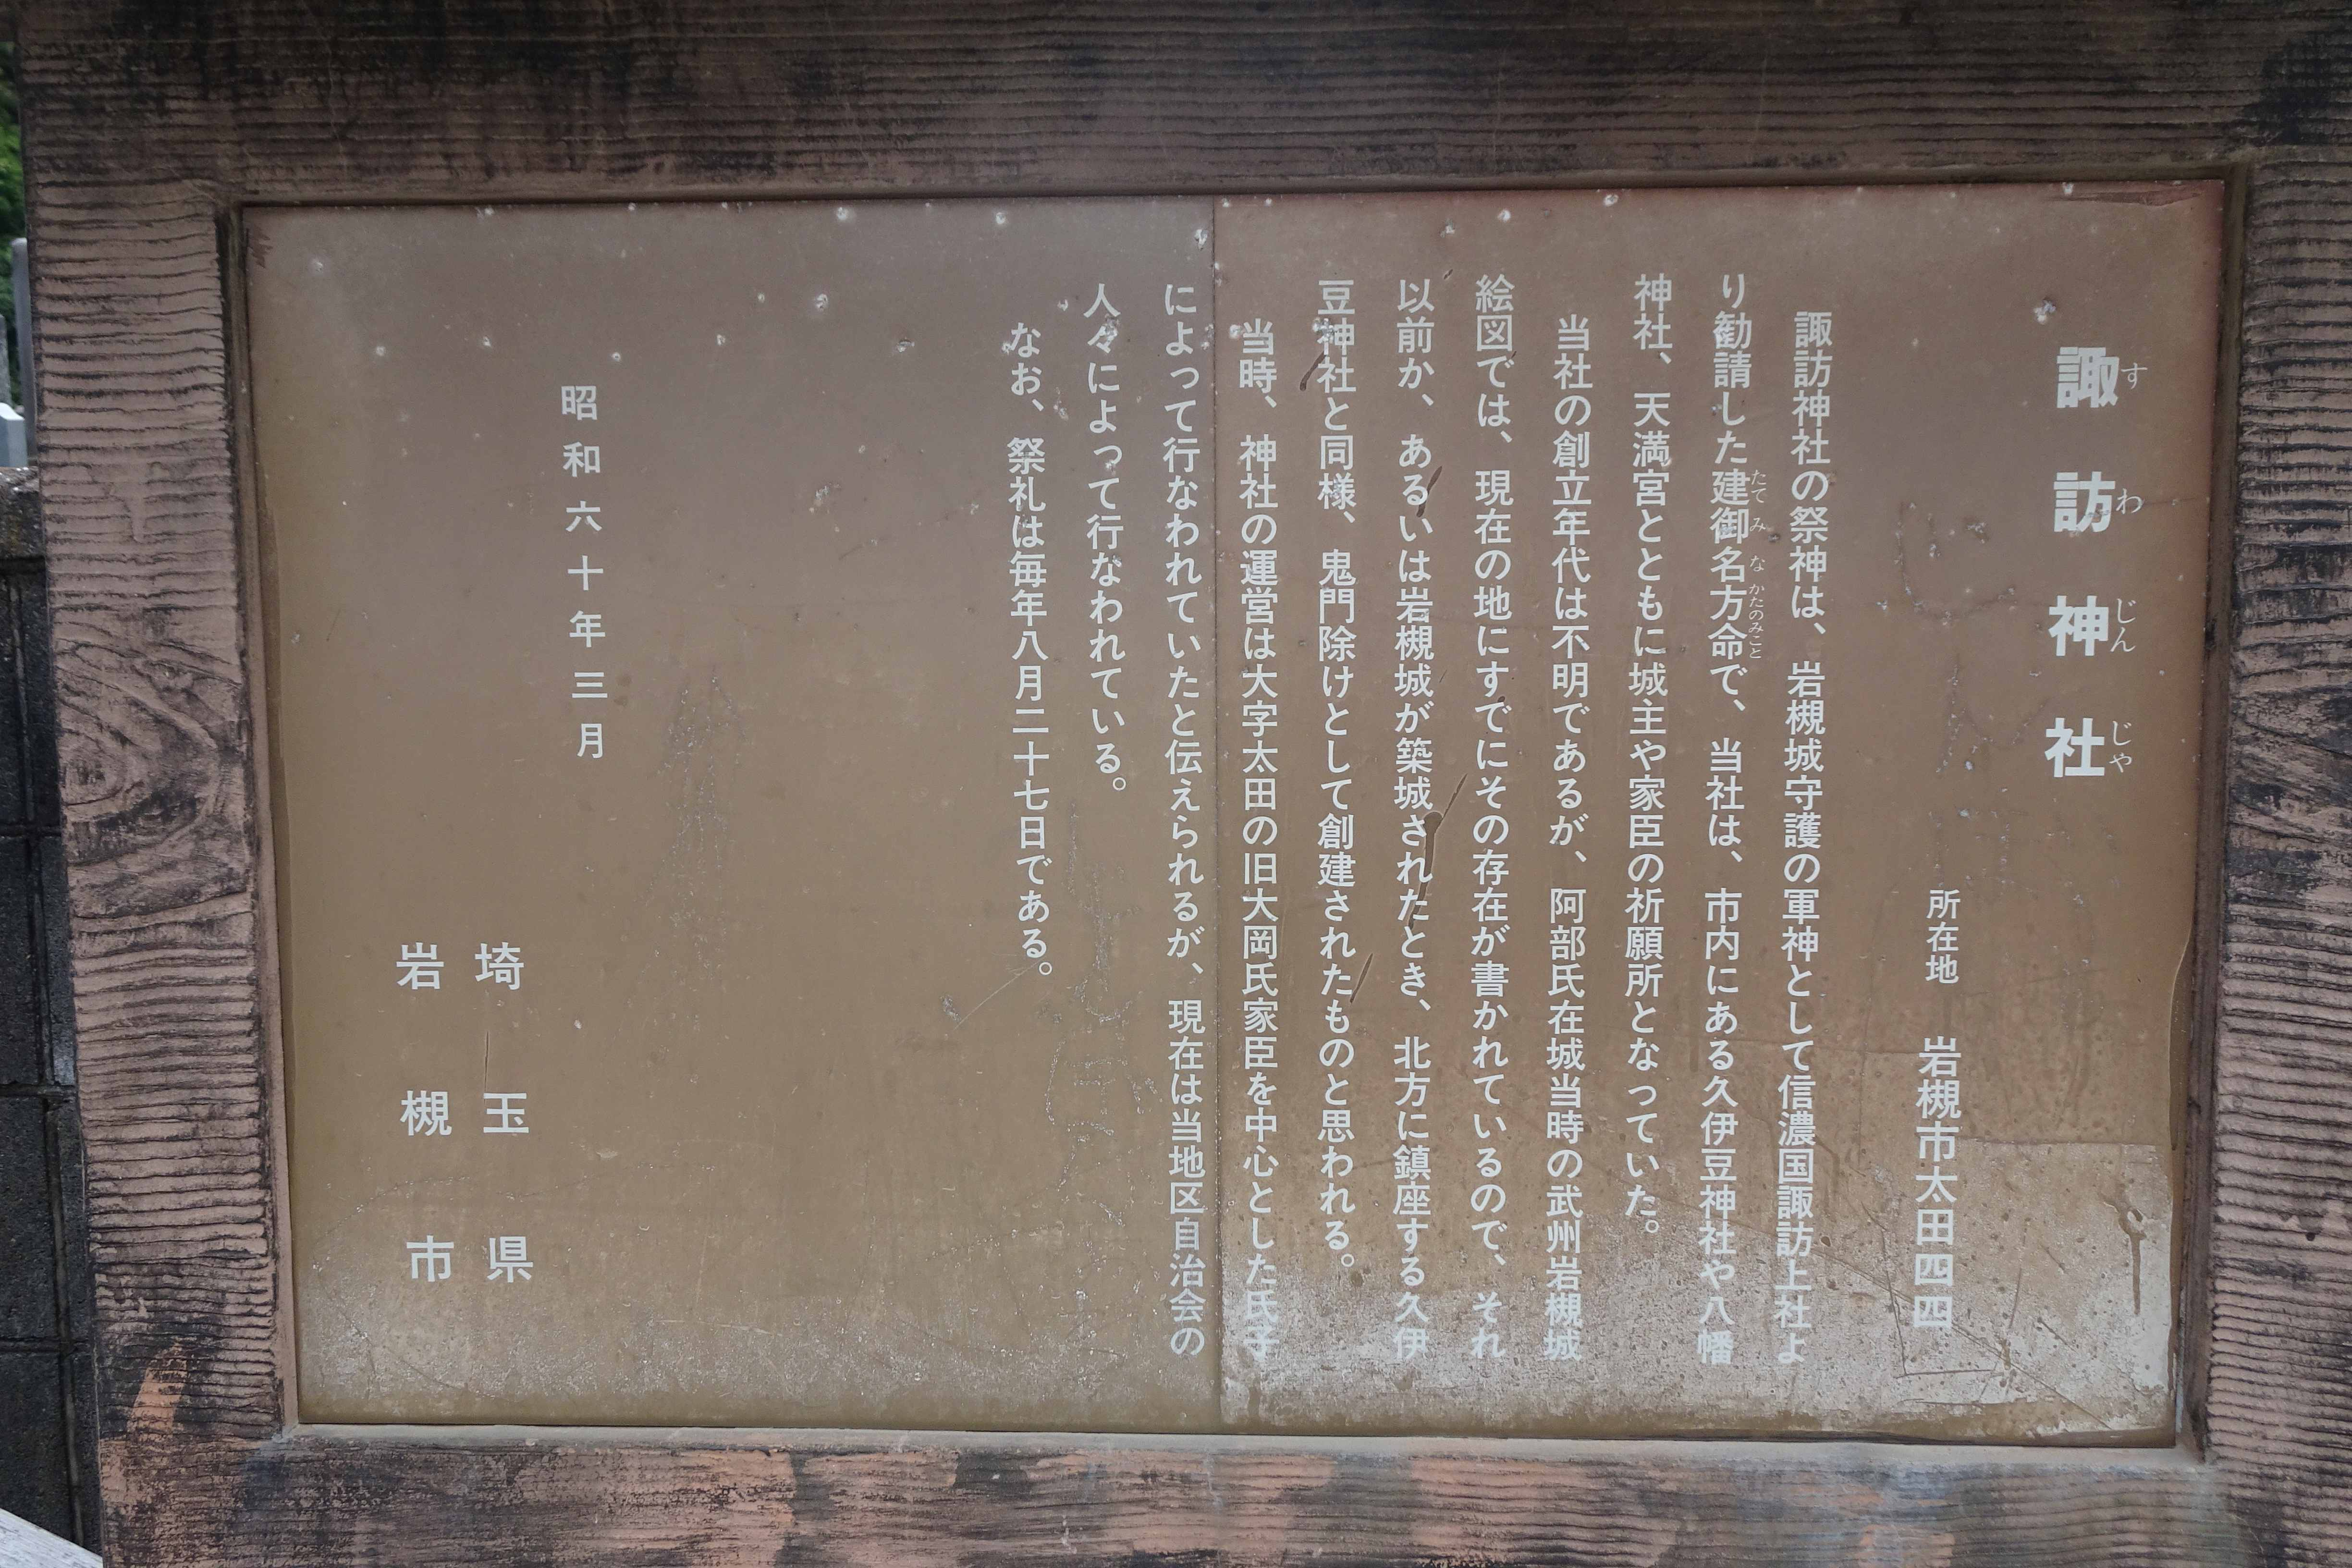 諏訪神社
すわじんじゃ
所在地　岩槻市太田四四
諏訪神社の祭神は、岩槻城守護の軍神として信濃国諏訪上社よ
り勧請した建御名方命で、当社は、市内にある久伊豆神社や八幡
たてみなかたのみこと
神社、天満宮とともに城主や家臣の祈願所となっていた。
当社の創立年代は不明であるが、阿部氏在城当時の武州岩槻城
絵図では、現在の地にすでにその存在が書かれているので、それ
以前か、あるいは岩槻城が築城されたとき、北方に鎮座する久伊
豆神社と同様、鬼門除けとして創建されたものと思われる。
当時、神社の運営は大字太田の旧大岡氏家臣を中心とした氏子
によって行なわれていたと伝えられるが、現在は当地区自治会の
人々によって行なわれている。
なお、祭礼は毎年八月二十七日である。
昭和六十年三月
埼玉県
岩槻市